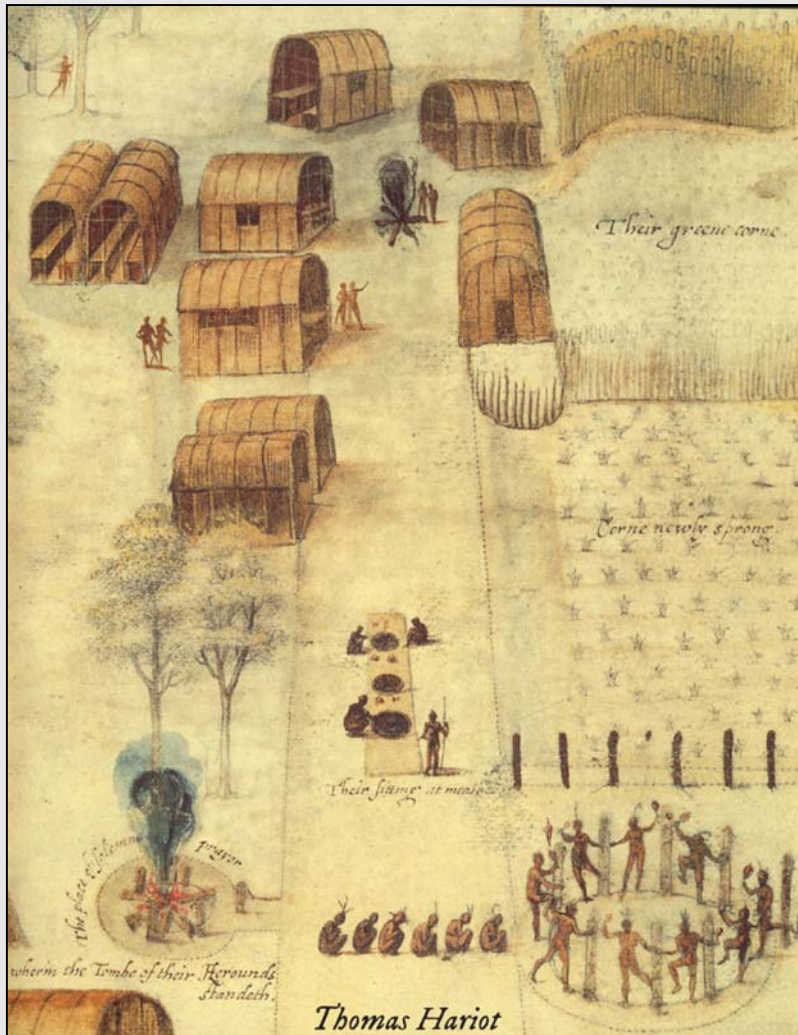 Their greene corne.
Corne newly sprong.
Their sitting at meate
The place of solemne prayer
wherin the Tombe of their Herounds
standeth.
Thomas Hariot